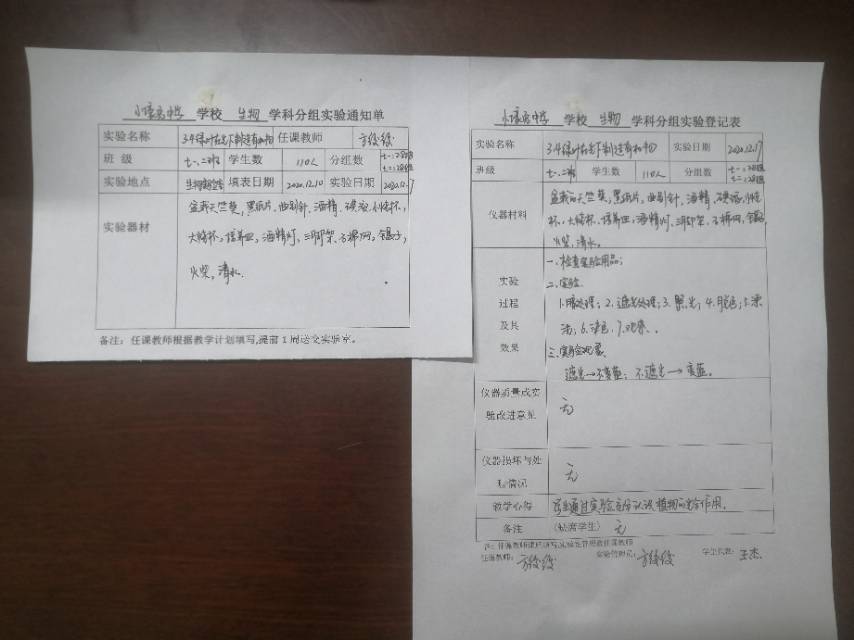 中学 学校 生物 学科分组实验通知单
实验名称 绿叶在光下制造有机物 任课教师
班级 七一、二班 学生数 110人 分组数
实验地点 生物实验室 填表日期 2020.12.10 实验日期 2020.12.17
实验器材
盆栽天竺葵,黑纸片,曲别针,酒精,碘液,小烧杯,
大烧杯,培养皿,酒精灯,三脚架,石棉网,镊子,
火柴,清水.
备注:任课教师根据教学计划填写,提前1周送交实验室。
中学 学校 生物 学科分组实验登记表
实验名称 绿叶在光下制造有机物 实验日期 2020.12.17
班级 七一.二班 学生数 110人 分组数
仪器材料
盆栽的天竺葵,黑纸片,曲别针,酒精,碘液,小烧
杯,大烧杯,培养皿,酒精灯,三脚架,石棉网,镊子,
火柴,清水.
实验
过程
及其
效果
一、检查实验用品;
二、实验.
1.暗处理;2.遮光处理;3.照光;4.脱色;5.漂
洗;6.染色.7.观察.
三、实验现象
遮光→不变蓝;不遮光→变蓝.
仪器质量或实
验改进意见 无
仪器损坏与处
理情况 无
教学心得 学生通过实验充分认识植物的光合作用.
备注 (缺席学生) 无
任课教师: 实验管理员: 学生代表:王杰.